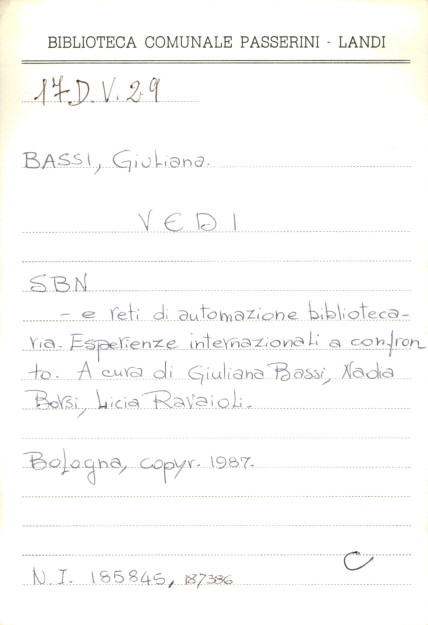 BIBLIOTECA COMUNALE PASSERINI - LANDI
17.D.V.29
BASSI, Giuliana.
VEDI
SBN
- e reti di automazione biblioteca-
ria. Esperienze internazionali a confron
to. A cura di Giuliana Bassi, Nadia
Borsi, Licia Ravaioli.
Bologna, copyr. 1987.
C
N.I. 185845, 187386